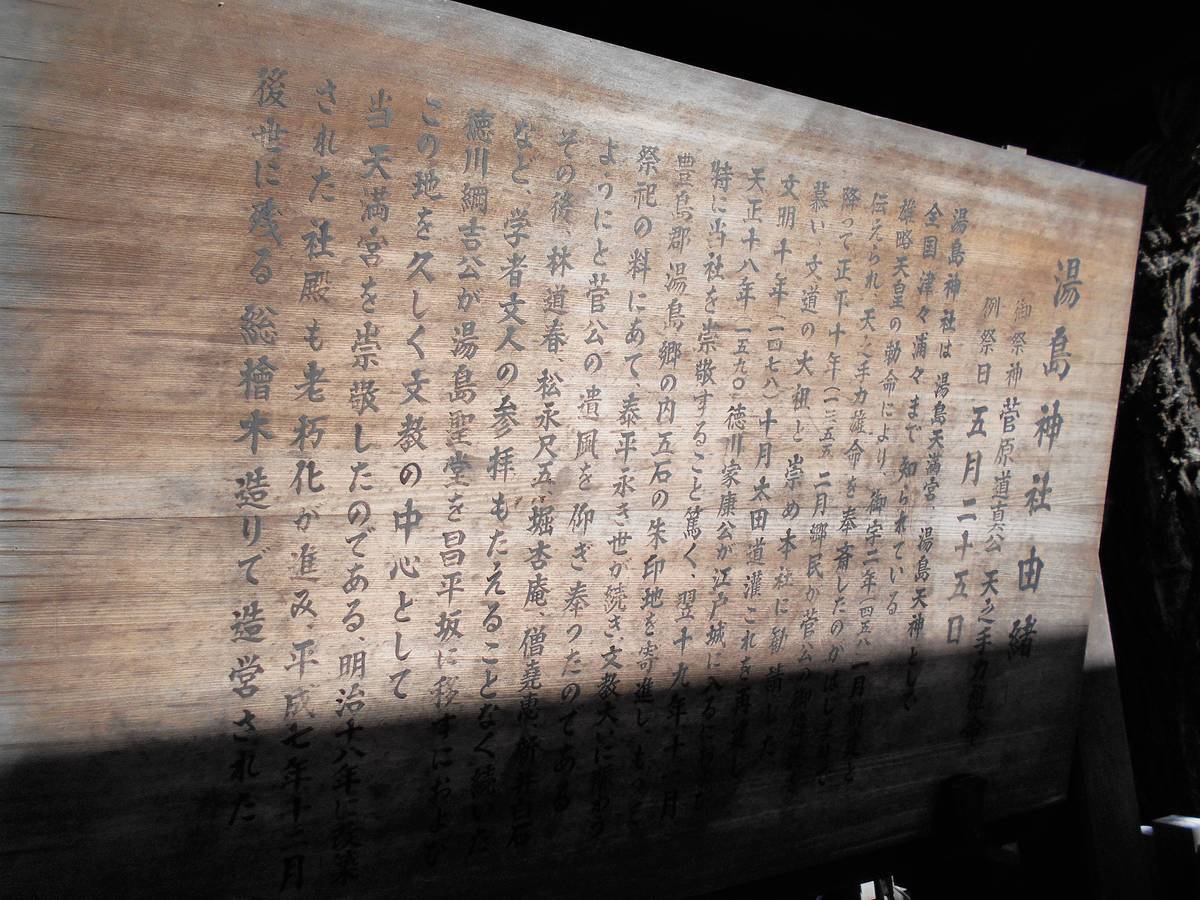 湯島神社由緒
御祭神 菅原道真公 天之手力雄命
例祭日 五月二十五日
湯島神社は 湯島天満宮、湯島天神として
全国津々浦々まで 知られている
雄略天皇の勅命により 御宇二年(四五八 一月創建と
伝えられ、天之手力雄命を奉斎したのがはじまりで
降って正平十年(一三五五 二月郷民が菅公の御偉徳を
慕い、文道の大祖と崇め本社に勧請した
文明十年(一四七八)十月太田道灌これを再建し
天正十八年 一五九〇 徳川家康公が江戸城に入るにおよび
特に当社を崇敬すること篤く、翌十九年十一月
豊島郡湯島郷の内五石の朱印地を寄進し、もって
祭祀の料にあて、泰平永き世が続き、文教大いに賑わう
ようにと菅公の遺風を仰ぎ奉ったのである
その後、林道春、松永尺五、堀杏庵、僧堯恵、新井白石
など、学者文人の参拝もたえることなく続いた
徳川綱吉公が湯島聖堂を昌平坂に移すにおよび
この地を久しく文教の中心として
当天満宮を崇敬したのである、明治十八年に改築
された社殿も老朽化が進み、平成七年十二月
後世に残る総檜木造りで造営された